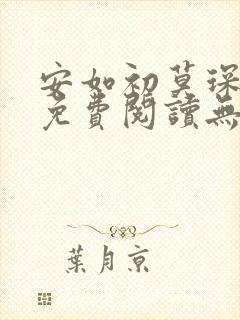 安如初莫琛
免費閱讀無
葉月京